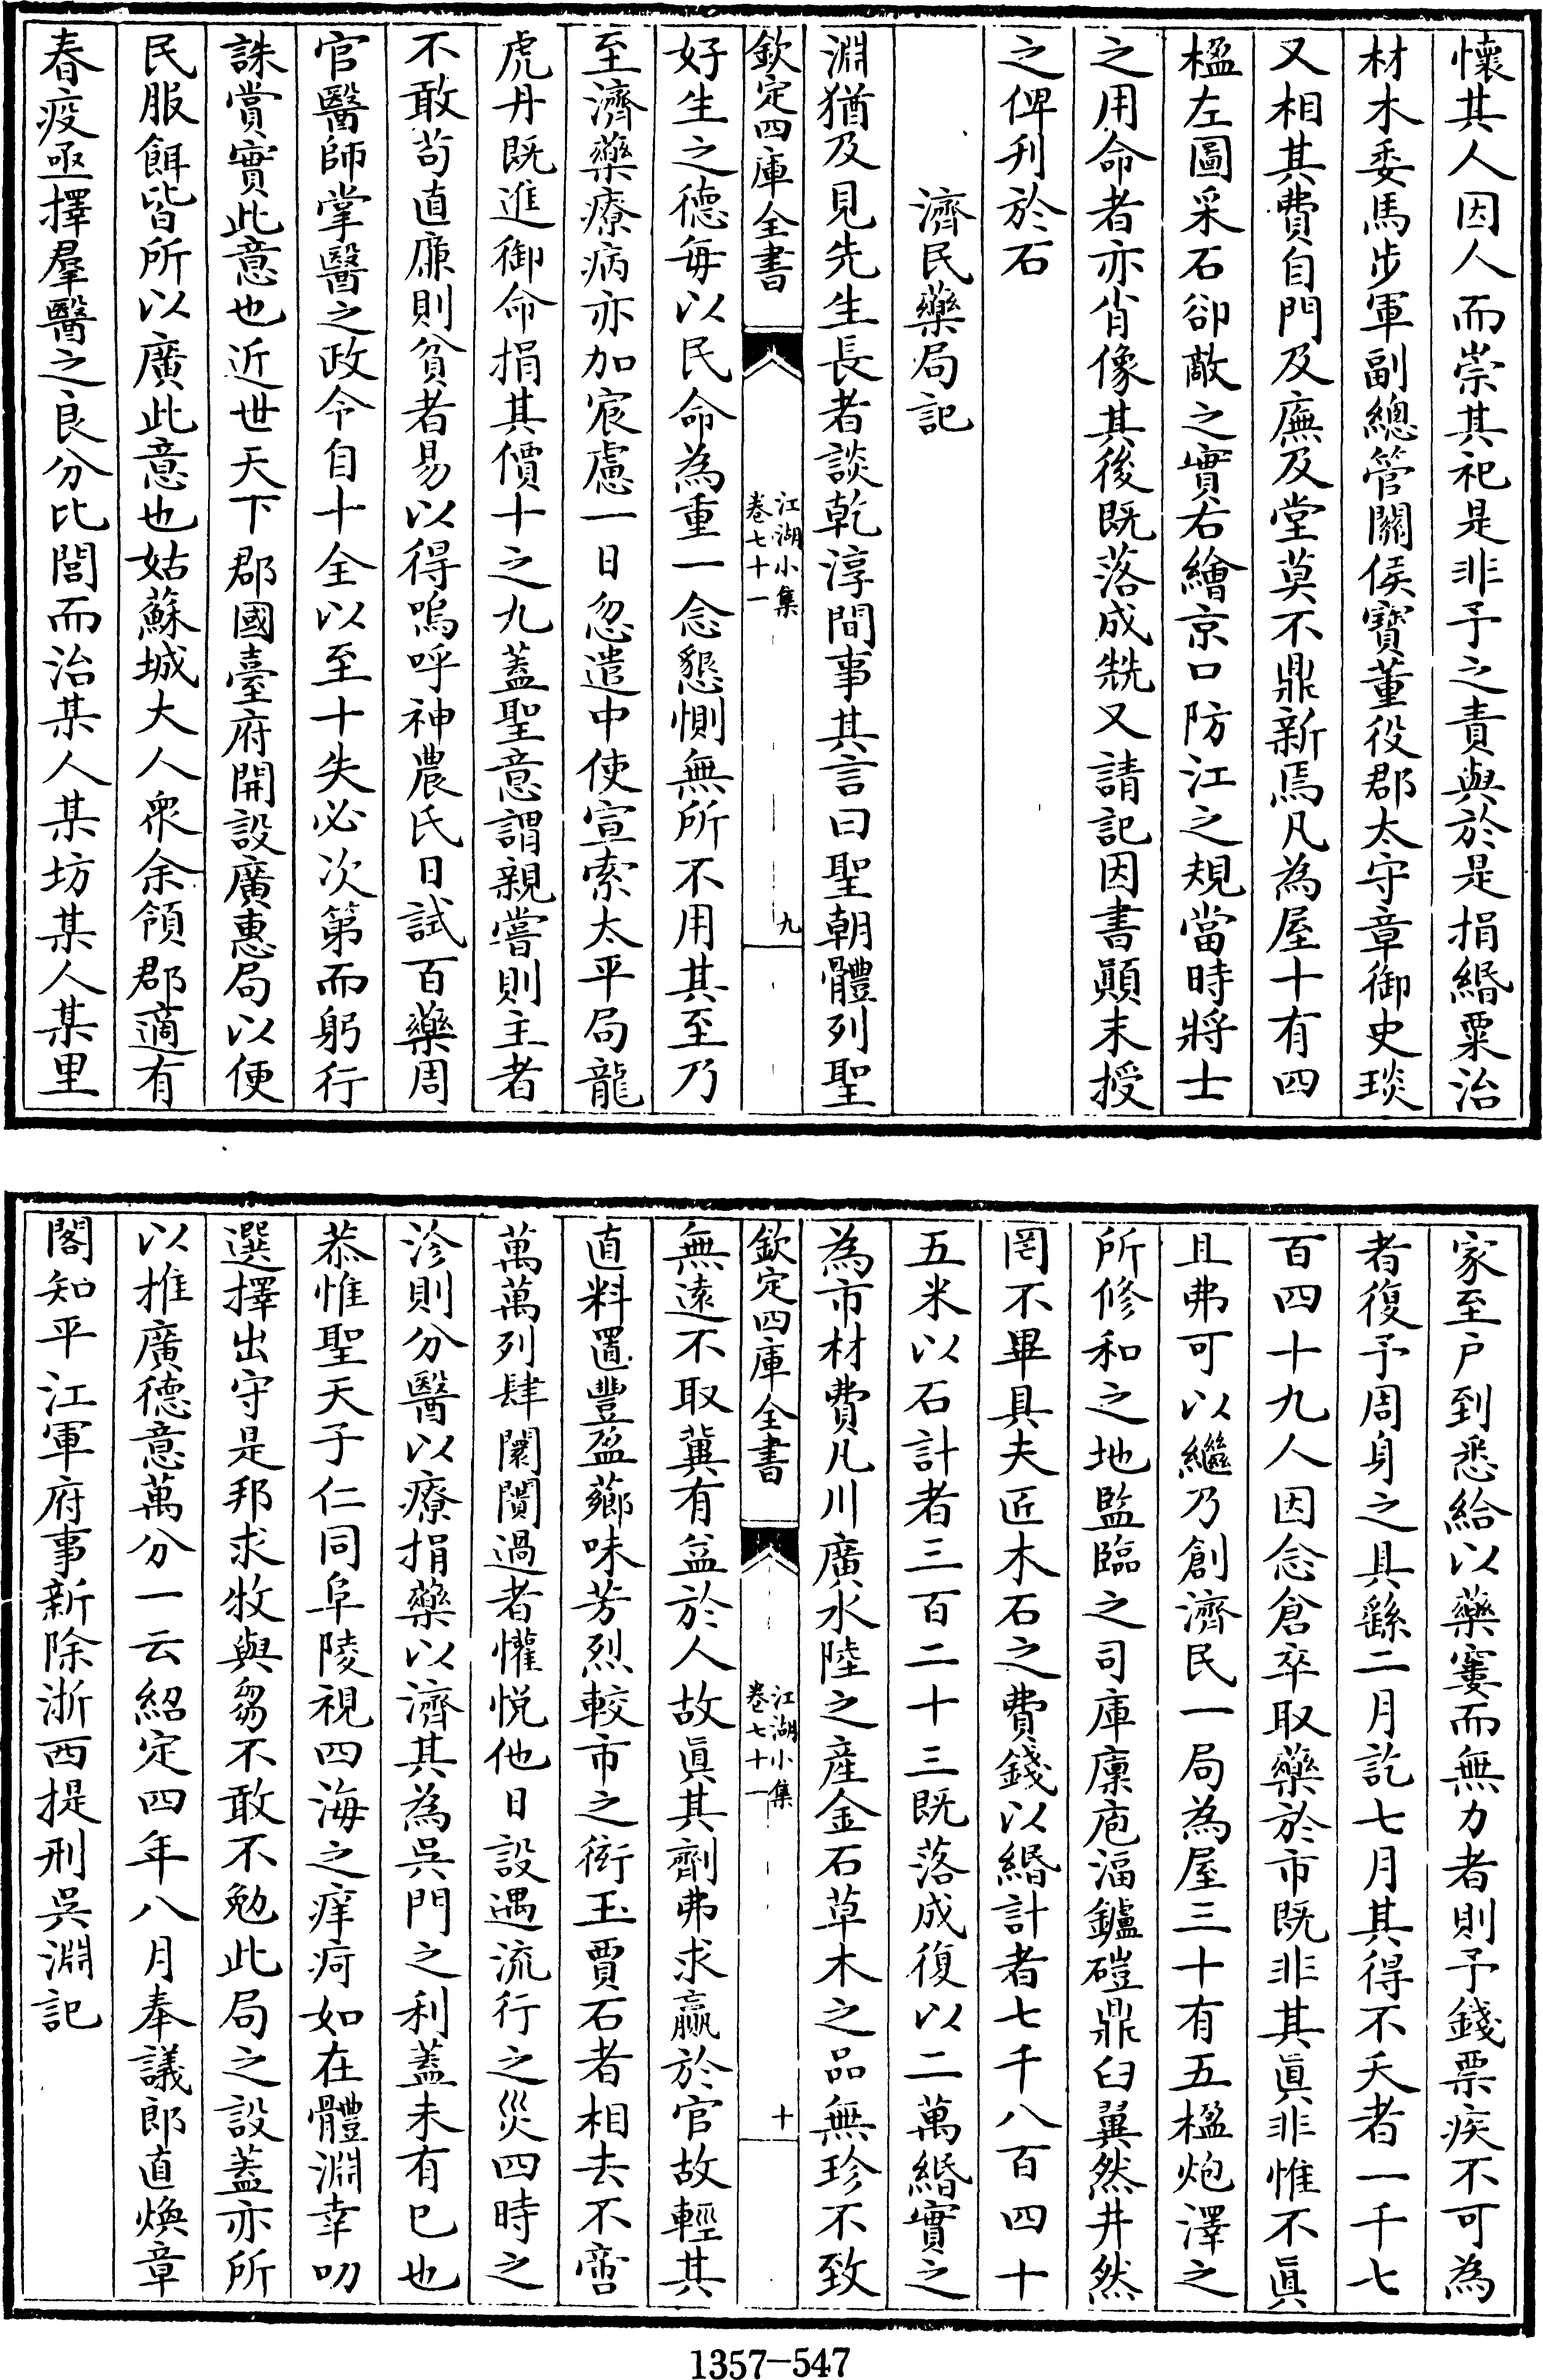 懷其人因人而崇其祀是非予之責與於是捐緡粟治
材木委馬步軍副總管關侯寶董役郡太守章御史琰
又相其費自門及廡及堂莫不鼎新焉凡為屋十有四
楹左圖采石卻敵之實右繪京口防江之規當時將士
之用命者亦肖像其後既落成兟又請記因書顛末授
之俾刋於石
濟民藥局記
淵猶及見先生長者談乾淳間事其言曰聖朝體列聖
欽定四庫全書
江湖小集
卷七十一
九
好生之德毎以民命為重一念懇惻無所不用其至乃
至濟藥療病亦加宸慮一日忽遣中使宣索太平局龍
虎丹既進御命捐其價十之九蓋聖意謂親嘗則主者
不敢茍直廉則貧者易以得嗚呼神農氏日試百藥周
官醫師掌醫之政令自十全以至十失必次第而躬行
誅賞實此意也近世天下郡國臺府開設廣惠局以便
民服餌皆所以廣此意也姑蘇城大人衆余領郡適有
春疫亟擇羣醫之良分比閭而治某人某坊某人某里
家至户到悉給以藥窶而無力者則予錢票疾不可為
者復予周身之具繇二月訖七月其得不夭者一千七
百四十九人因念倉卒取藥於市既非其眞非惟不眞
且弗可以繼乃創濟民一局為屋三十有五楹炮澤之
所修和之地監臨之司庫廩庖湢鑪磑鼎臼翼然井然
罔不畢具夫匠木石之費錢以緡計者七千八百四十
五米以石計者三百二十三既落成復以二萬緡實之
為市材費凡川廣水陸之産金石草木之品無珍不致
欽定四庫全書
江湖小集
卷七十一
十
無遠不取冀有益於人故眞其劑弗求贏於官故輕其
直料置豐盈薌味芳烈較市之衒玉賈石者相去不啻
萬萬列肆闤闠過者懽悦他日設遇流行之災四時之
沴則分醫以療捐藥以濟其為吳門之利蓋未有已也
恭惟聖天子仁同阜陵視四海之痒疴如在體淵幸叨
選擇出守是邦求牧與芻不敢不勉此局之設蓋亦所
以推廣德意萬分一云紹定四年八月奉議郎直煥章
閣知平江軍府事新除浙西提刑吳淵記
1357-547